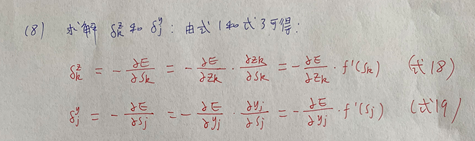 (8) 求解 δₖᶻ 和 δⱼʸ：由式1和式3可得：
δₖᶻ = -∂E/∂sₖ = -∂E/∂zₖ · ∂zₖ/∂sₖ = -∂E/∂zₖ · f'(sₖ) (式18)
δⱼʸ = -∂E/∂sⱼ = -∂E/∂yⱼ · ∂yⱼ/∂sⱼ = -∂E/∂yⱼ · f'(sⱼ) (式19)